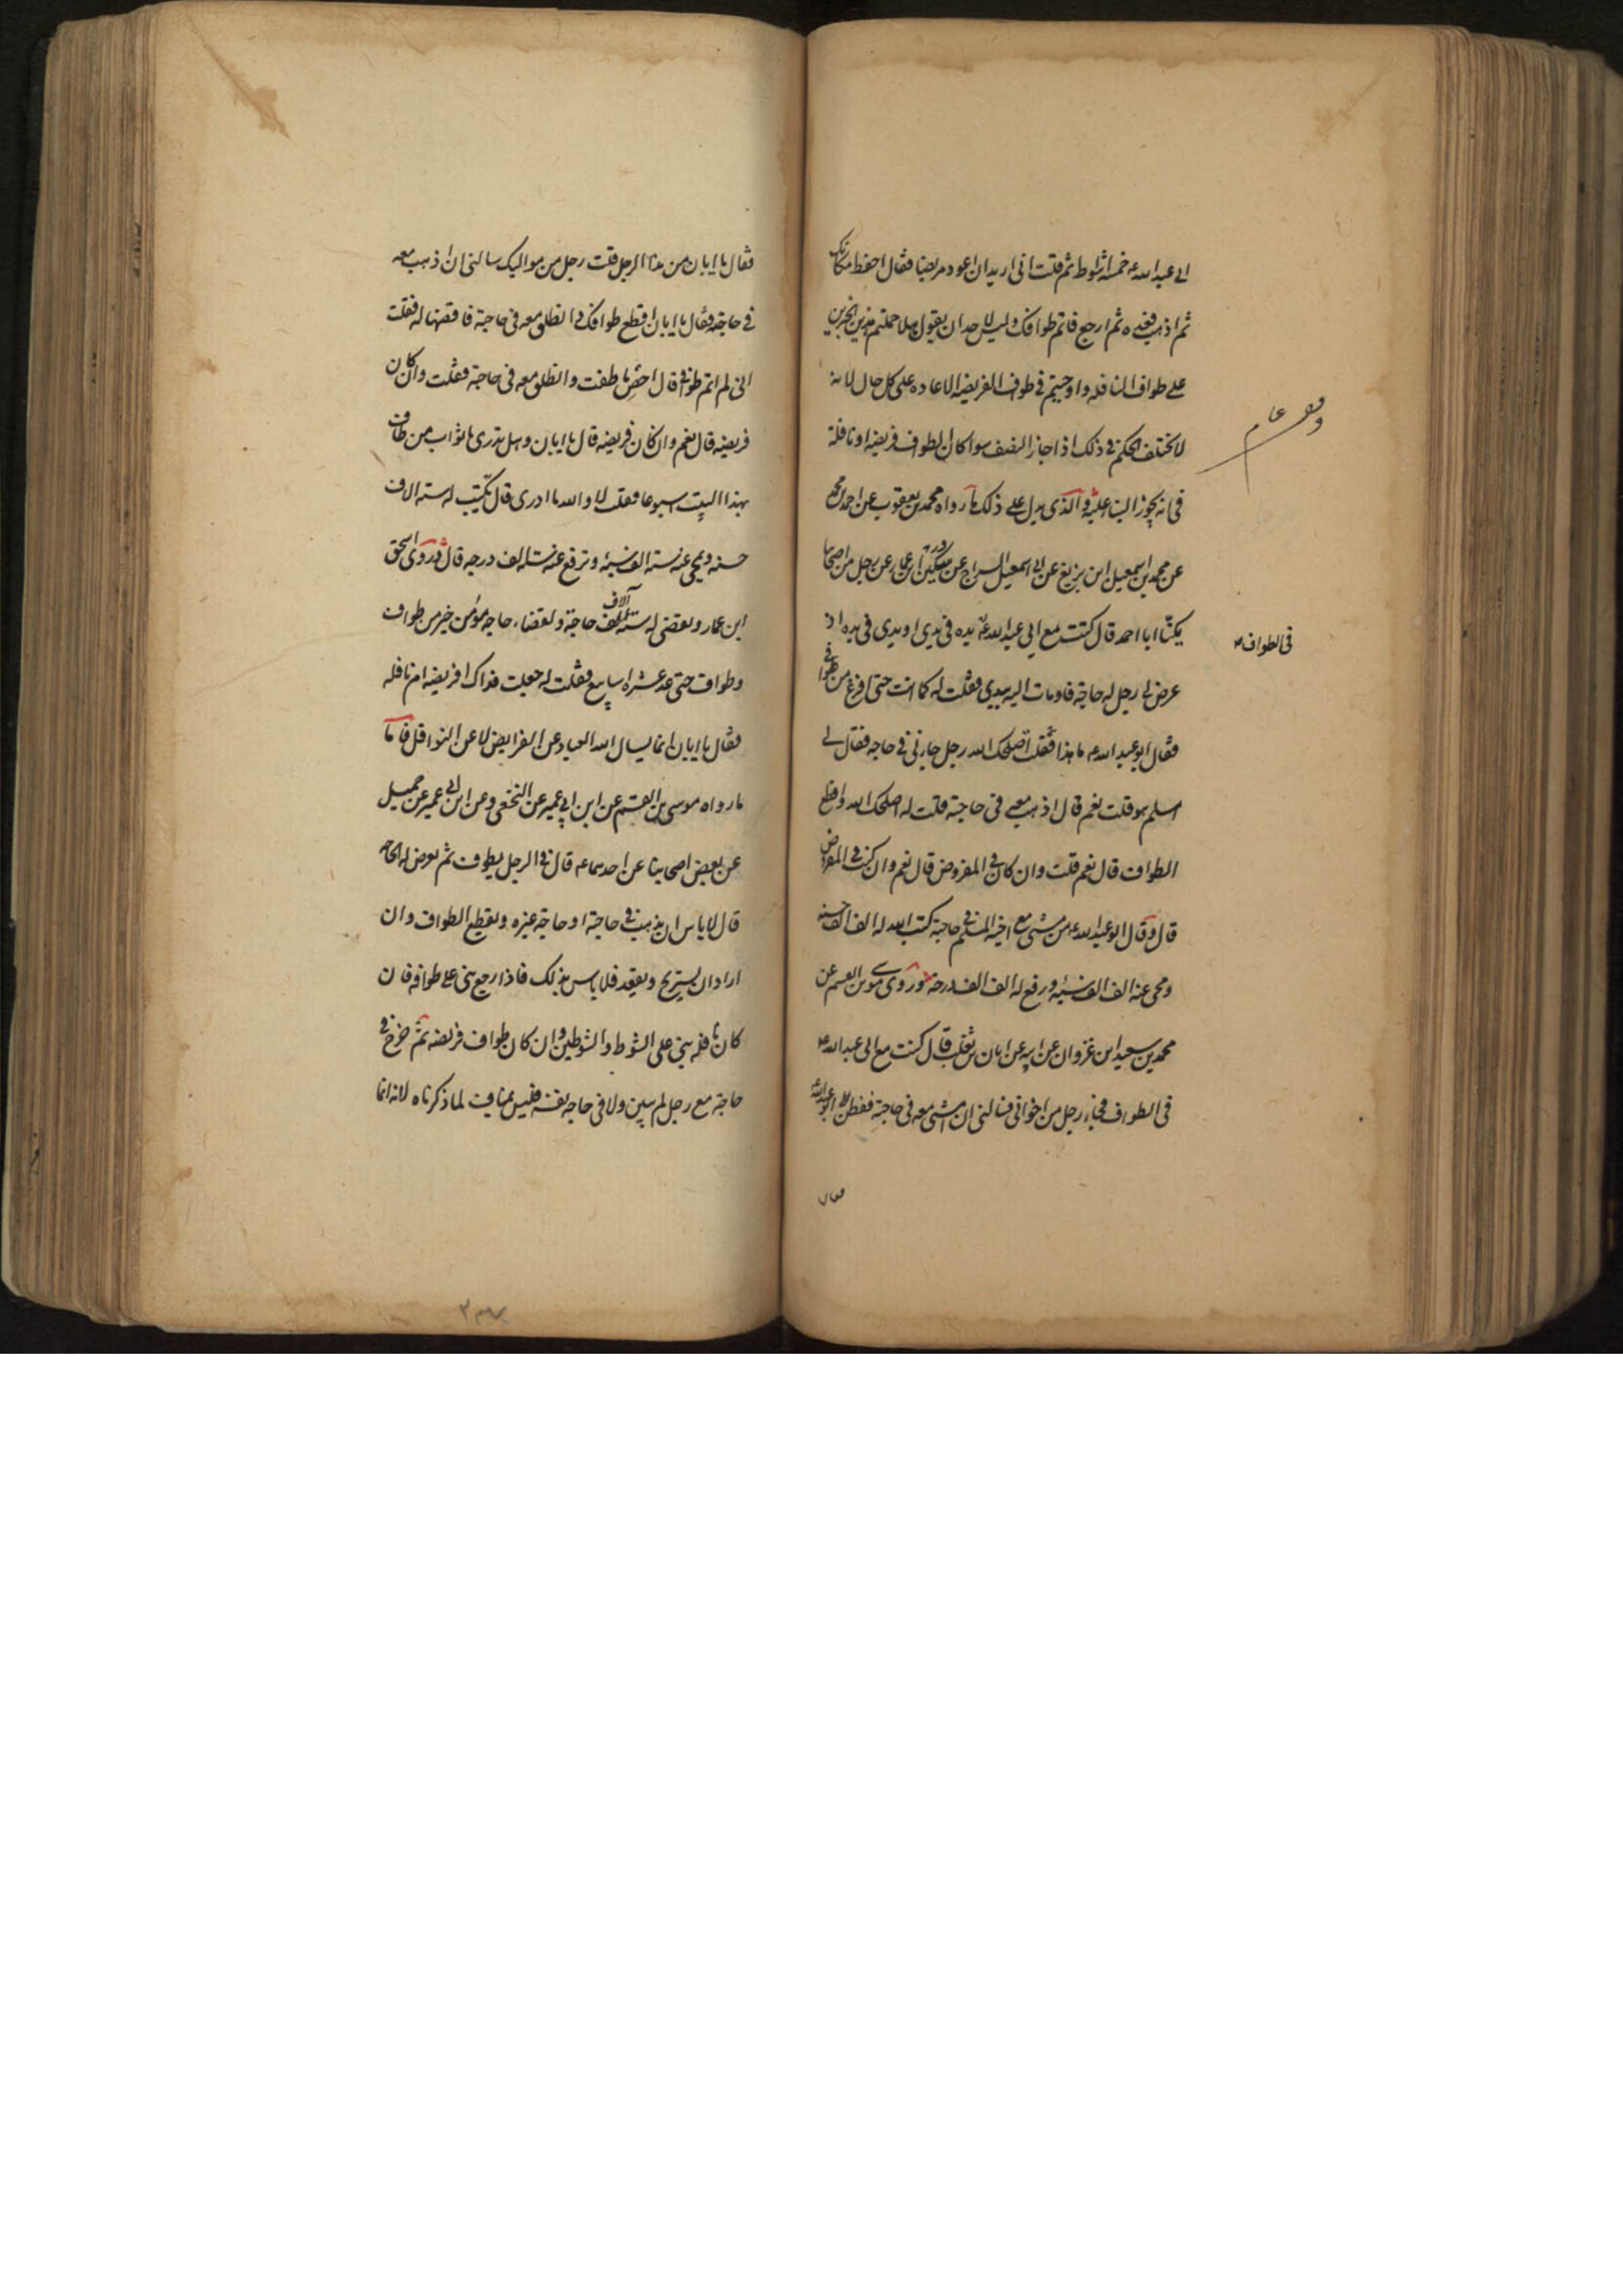 ابی عبد الله ع خمسه اشواط ثم قلت انی ارید ان اعود مریضا فقال احفظ مکانک
ثم اذهب فعده ثم ارجع فاتم طوافک ولیس لاحد ان یقول هلا حملتم هذین الخبرین
علی طواف النافله واوجبتم فی طواف الفریضه الاعاده علی کل حال لانه
لا یختلف الحکم فی ذلک اذا جاز النصف سوا کان الطواف فریضه او نافلة
فی انه یجوز البنا علیه والذی یدل علی ذلک ما رواه محمد بن یعقوب عن احمد بن محمد
عن محمد بن اسمعیل ابن بزیع عن ابی اسمعیل السراج عن سکین ابن عمار عن رجل من اصحابنا
یکنّا ابا احمد قال کنت مع ابی عبد الله ع یده فی یدی او یدی فی یده اذ
فی الطواف
عرض لی رجل له حاجة فاومات الیه بیدی فقلت له کما انت حتی افرغ من طوافی
فقال ابو عبد الله ع ما هذا فقلت اصلحک الله رجل جاءنی فی حاجه فقال لی
اسلم هو قلت نعم قال اذهب معه فی حاجته قلت له اصلحک الله واقطع
الطواف قال نعم قلت وان کان فی المفروض قال نعم وان کنت فی المفروض
قال وقال ابو عبد الله ع من مشی مع اخیه المسلم فی حاجة کتب الله له الف الف حسنه
ومحی عنه الف الف سیئه ورفع له الف الف درجة وروی موسی بن القسم عن
محمد بن سعید ابن غزوان عن ابیه عن ابان بن تغلب قال کنت مع ابی عبد الله ع
فی الطواف فجاء رجل من اخوانی فسالنی ان امشی معه فی حاجة ففطن لی ابو عبد الله ع
فقال
فقال یا ابان من هذا الرجل قلت رجل من موالیک سالنی ان اذهب معه
فی حاجته فقال یا ابان اقطع طوافک وانطلق معه فی حاجته فاقضها له فقلت
انی لم اتم طوافی قال احص ما طفت وانطلق معه فی حاجته فقلت وان کان
فریضه قال نعم وان کان فریضه قال یا ابان وهل تدری ما ثواب من طاف
بهذا البیت اسبوعا فقلت لا والله ما ادری قال تکتب له سته الاف
حسنه ویمحی عنه سته الف سیئه وترفع عنه سته الف درجه قال وروی اسحق
ابن عمار ویقضی له سته آلاف حاجة ولقضاء حاجه مؤمن خیر من طواف
وطواف حتی عد عشره اسابیع فقلت له جعلت فداک افریضه ام نافله
فقال یا ابان انما یسال الله العباد عن الفرایض لا عن النوافل فاما
ما رواه موسی بن القسم عن ابن ابی عمیر عن النخعی وعن ابن ابی عمیر عن جمیل
عن بعض اصحابنا عن احدهما ع قال فی الرجل یطوف ثم یعرض له الحاجه
قال لا باس ان یذهب فی حاجته او حاجة غیره ویقطع الطواف وان
اراد ان یستریح ویقعد فلا باس بذلک فاذا رجع بنی علی طوافه فان
کان نافله بنی علی الشوط والشوطین وان کان طواف فریضه ثم خرج فی
حاجة مع رجل لم یبن ولا فی حاجه نفسه فلیس بمناف لما ذکرناه لانه انما